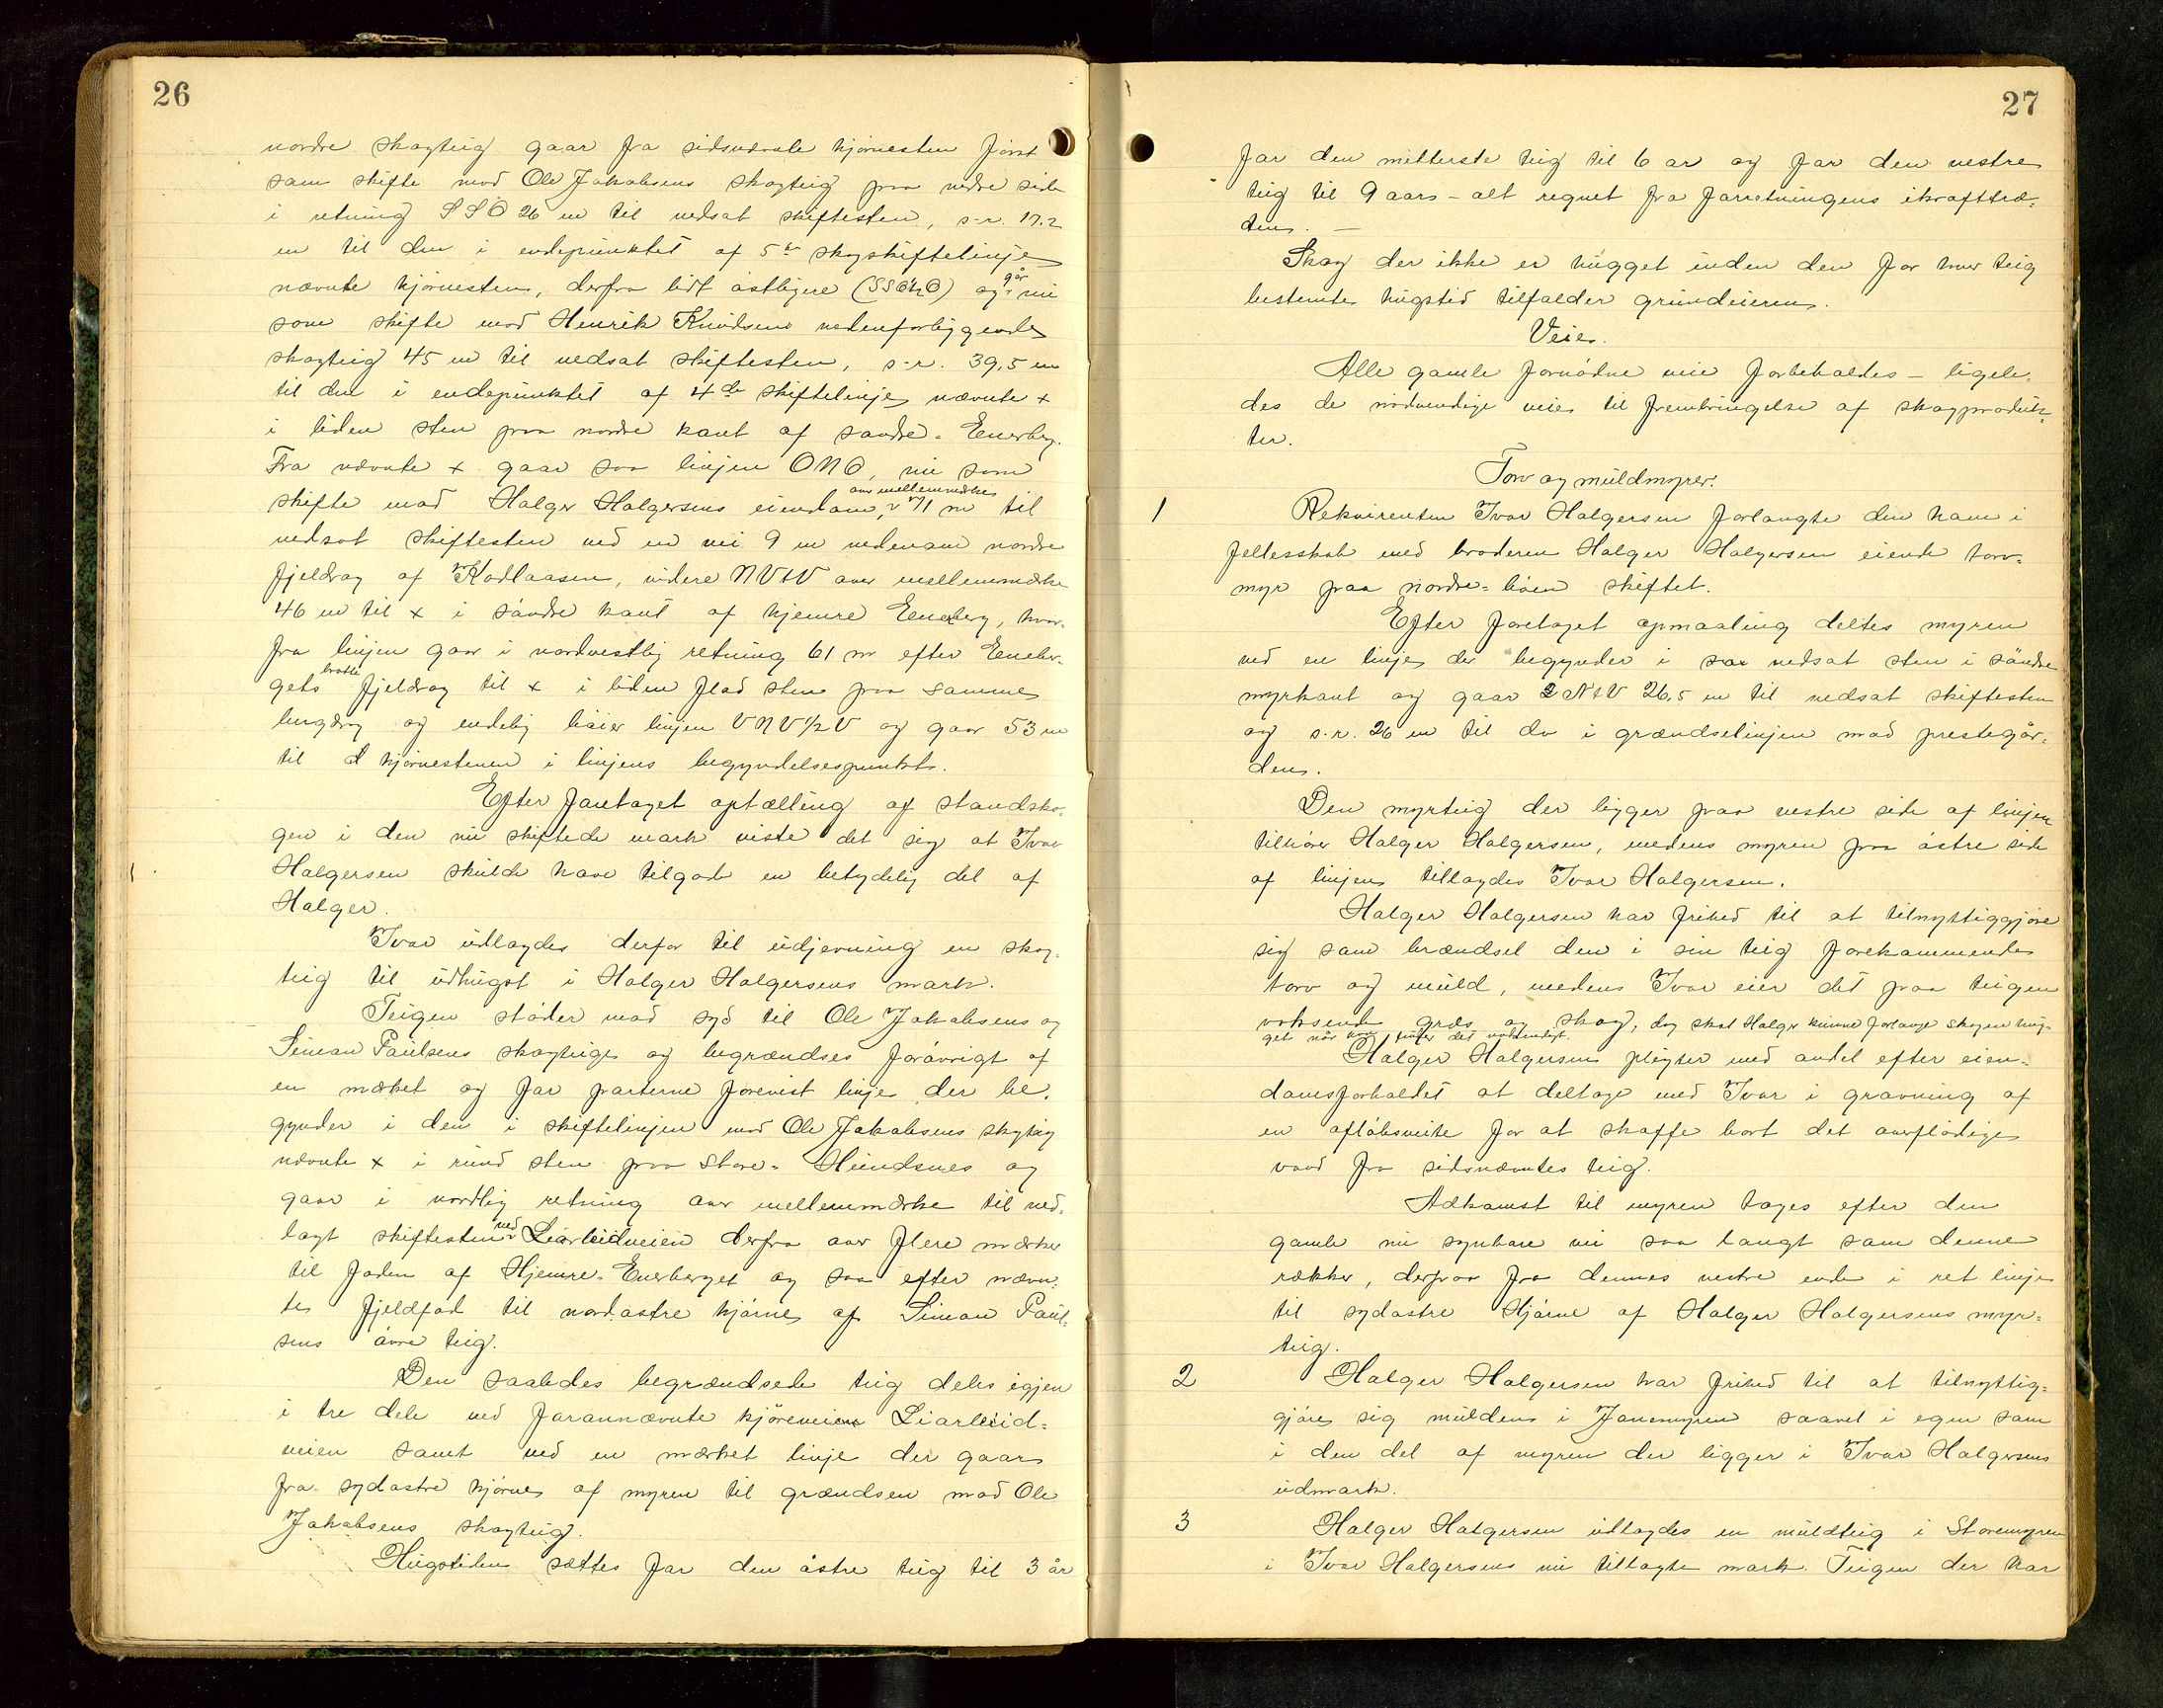 26
nordre skogteig gaar fra sidsnævnte hjørnesten först
som skifte mod Ole Jakobsens skogteig paa nedre side
i retning SSO 26 m til nedsat skiftesten, s-r. 17.2
m til den i endepunktet af 5te skogskiftelinje
nævnte hjørnesten, derfra lidt østligere (SSO½O) og går nu
som skifte mod Henrik Knudsens nedenforliggende
skogteig 45 m til nedsat skiftesten, s-r. 39,5 m
til den i endepunktet af 4de skiftelinje nævnte +
i liden sten paa nordre kant af søndre-Enerberg.
Fra nævnte + gaar saa linjen ONO, nu som
skifte mod Holger Holgersens eiendom, over mellemmærke 71 m til
nedsat skiftesten ved en vei 9 m nedenom nordre
fjeldrag af Kodlaasen, videre NVtV over mellemmærke
46 m til x i søndre kant af hjemre Enerberg, hvor-
fra linjen gaar i nordvestlig retning 61 m efter Enerber-
gets bratte fjeldrag til x i liden flad sten paa samme
bergdrag og endelig høier linjen VNV½V og gaar 53 m
til hjørnestenen i linjens begyndelsespunkt.
Efter foretaget optælling af standsko-
gen i den nu skiftede mark viste det sig at Ivar
Holgersen skulde have tilgode en betydelig del af
Holger.
Ivar udlagdes derfor til udjevning en skog-
teig til udhugst i Holger Holgersens mark.
Teigen støder mod syd til Ole Jakobsens og
Simon Paulsens skogteige og begrændses forøvrigt af
en mærket og for parterne forevist linje der be-
gynder i den i skiftelinjen mod Ole Jakobsens skogteig
nævnte x i rund sten paa Store-Hundsnes og
gaar i nordlig retning over mellemmærke til ned-
lagt skiftesten ved Liarleidveien derfra over flere mærker
til foden af Hjemre-Enerberget og saa efter nævn-
te fjeldfod til nordøstre hjørne af Simon Paul-
sens øvre teig.
Den saaledes begrændsede teig deles igjen
i tre dele ved forannævnte kjøreveien Liarleid-
veien samt ved en mærket linje der gaar
fra sydøstre hjørne af myren til grændsen mod Ole
Jakobsens skogteig.
Hugstiden sættes for den østre teig til 3 år
27
for den mitterste teig til 6 ar og for den vestre
teig til 9 aar - alt regnet fra forretningens ikrafttræ-
den. —
Skog der ikke er hugget inden den for hver teig
bestemte hugstid tilfalder grundeieren.
Veie.
Alle gamle fornødne veie forbeholdes - ligele-
des de nødvendige veier til frembringelse af skogproduk-
ter.
Torv og muldmyrer.
1 Rekvirenten Ivar Holgersen forlangte den ham i
fellesskab med broderen Holger Holgersen eiende torv-
myr paa nordre-høien skiftet.
Efter foretaget opmaaling deltes myren
ved en linje der begynder i nedsat sten i søndre
myrkant og gaar NtV 26,5 m til nedsat skiftesten
og s.r. 26 m til do i grændselinjen mod prestegår-
den.
Den myrteig der ligger paa vestre side af linjen
tilhører Holger Holgersen, medens myren paa østre side
af linjen tillagdes Ivar Holgersen.
Holger Holgersen har frihed til at tilnyttiggjøre
sig som brændsel den i sin teig forekommende
torv og muld, medens Ivar eier det paa teigen
voksende græs og skog, dog skal Holger kunne forlange skogen hug-
get når han finder det nødvendigt.
Holger Holgersen pligter med andel efter eien-
domsforholdet at deltage med Ivar i gravning af
en afløbsveite for at skaffe bort det overflødige
vand fra sidsnævntes teig.
Adkomst til myren tages efter den
gamle nu synbare vei saa langt som denne
rækker, derpaa fra dennes vestre ende i ret linje
til sydøstre hjørne af Holger Holgersens myr-
teig.
2 Holger Holgersen har frihed til at tilnyttig-
gjøre sig mulden i Janemyren saavel i egen som
i den del af myren der ligger i Ivar Holgersens
udmark.
3 Holger Holgersen udlagdes en muldteig i Storemyren
i Ivar Holgersens nu tillagte mark. Teigen der har